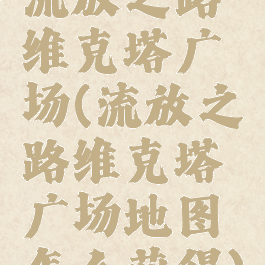 流放之路
维克塔广
场(流放之
路维克塔
广场地图
怎么获得)